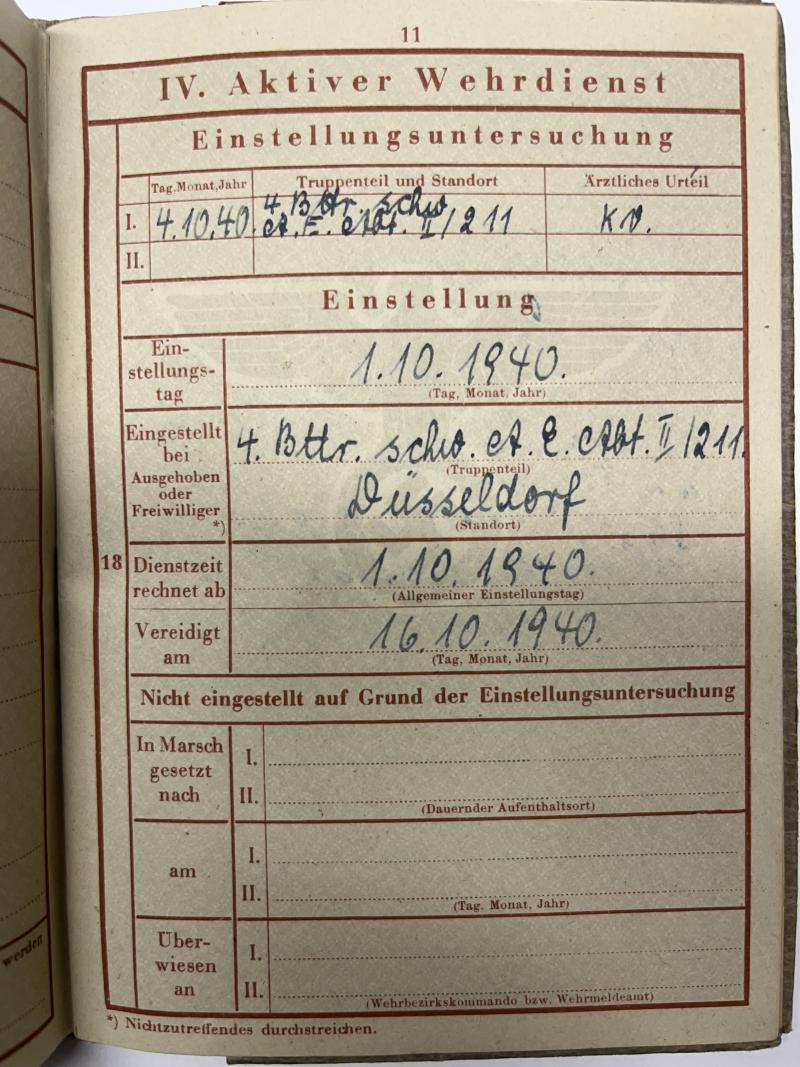 11
IV. Aktiver Wehrdienst
Einstellungsuntersuchung
Tag, Monat, Jahr
Truppenteil und Standort
Ärztliches Urteil
I.
4.10.40.
4. Bttr. schw.
A. E. Abt. II/211
kv.
II.
Einstellung
Ein-
stellungs-
tag
1.10.1940.
(Tag, Monat, Jahr)
Eingestellt
bei
Ausgehoben
oder
Freiwilliger
*)
4. Bttr. schw. A. E. Abt. II/211.
(Truppenteil)
Düsseldorf
(Standort)
18
Dienstzeit
rechnet ab
1.10.1940.
(Allgemeiner Einstellungstag)
Vereidigt
am
16.10.1940.
(Tag, Monat, Jahr)
Nicht eingestellt auf Grund der Einstellungsuntersuchung
In Marsch
gesetzt
nach
I.
II.
(Dauernder Aufenthaltsort)
am
I.
II.
(Tag, Monat, Jahr)
Über-
wiesen
an
I.
II.
(Wehrbezirkskommando bzw. Wehrmeldeamt)
*) Nichtzutreffendes durchstreichen.
werden